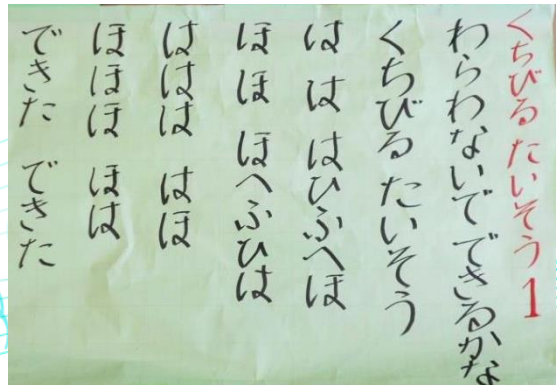 くちびる たいそう 1
わらわないで できるかな
くちびる たいそう
は は はひふへほ
ほ ほ ほへふひは
ははは はほ
ほほほ ほは
できた できた